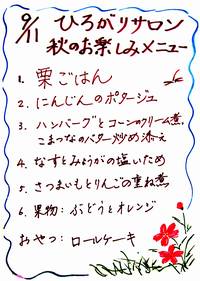 9/11 ひろがりサロン
秋のお楽しみメニュー
1. 栗ごはん
2. にんじんのポタージュ
3. ハンバーグとコーンのクリーム煮,
こまつなのバター炒め添え
4. なすとみょうがの塩いため
5. さつまいもとりんごの重ね煮
6. 果物: ぶどうとオレンジ
おやつ: ロールケーキ